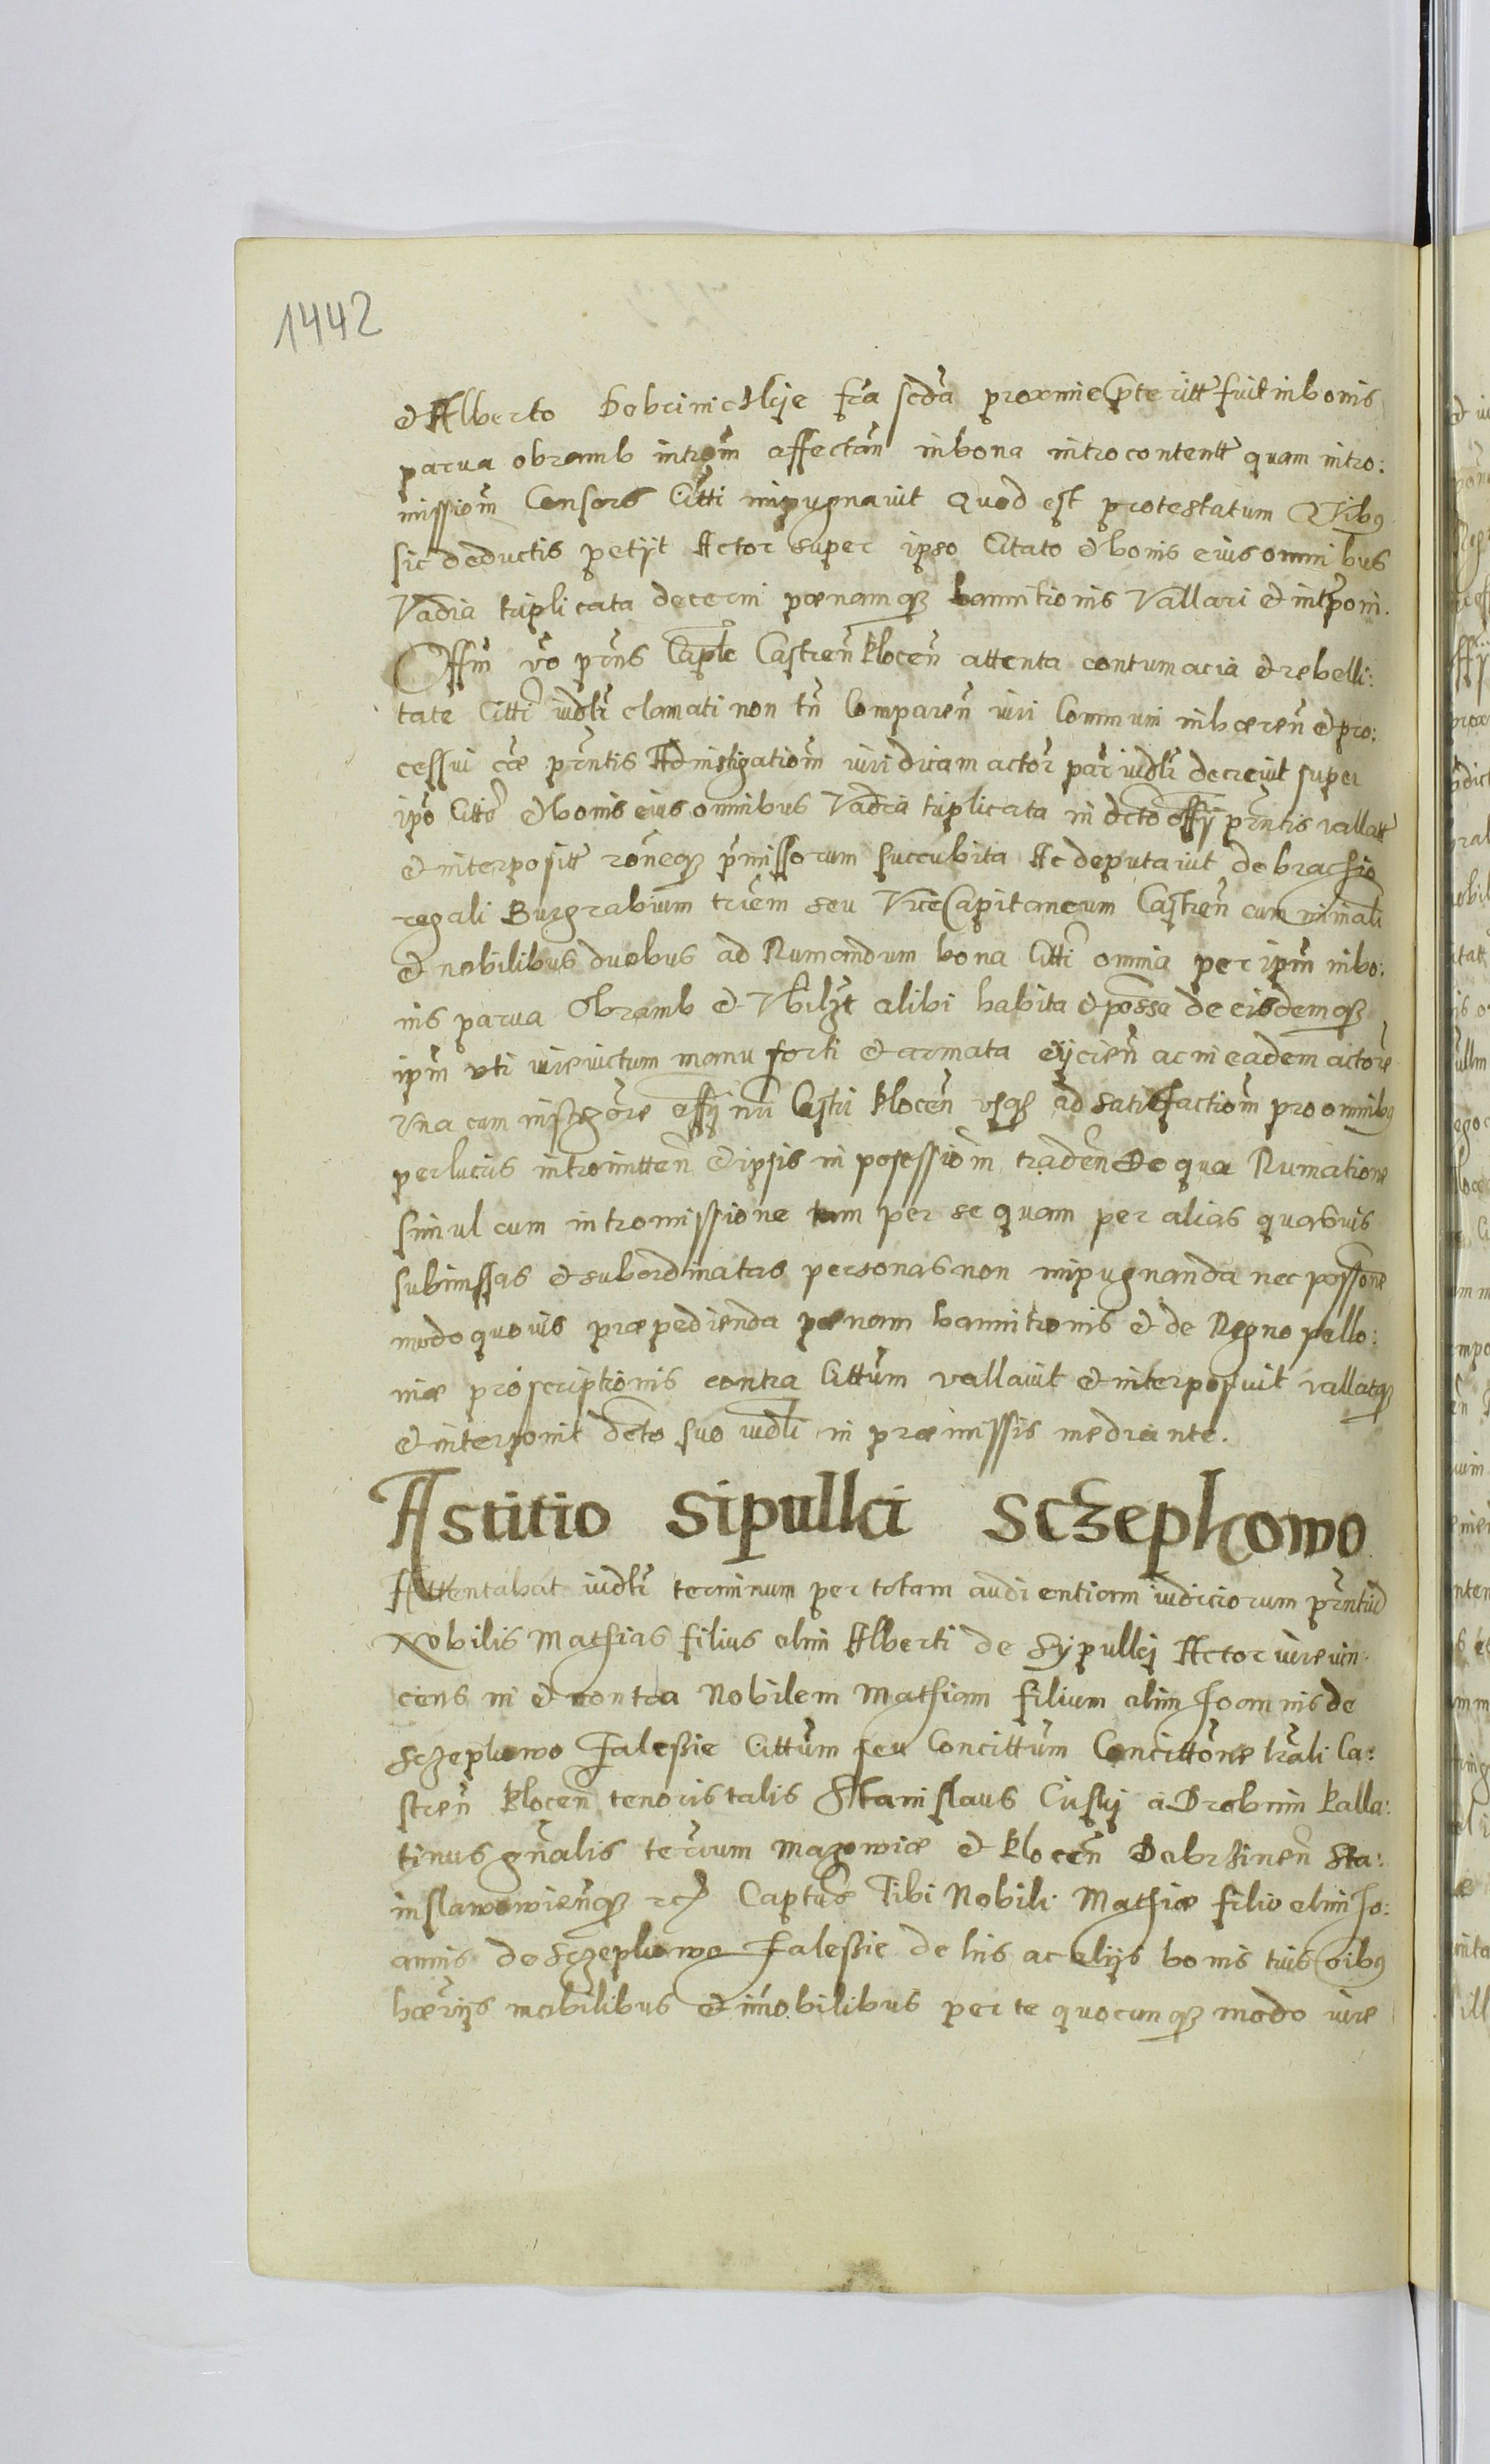 1442
et Alberto Dobrinicskje fra scda proxime pteritt fuit in bonis
parua obramb introm affectan in bona introcontentt quam intro:
missiom Consors Citti impugnavit Quod est protestatum Quibus
sic deductis petyt Actor super ipso Citato et bonis eius omnibus
Vadia triplicata decerni poenamq bannitionis Vallari et interponi.
Offm vo prns Caple Castren Plocen attenta contumacia et rebelli:
tate Citti iudlr clamati non tn Comparen iuri Communi inhaeren et pro:
cessui cae prntis Ad instigatiom iuridicam actor par iudlr decrevit super
ipo Citto et bonis eius omnibus Vadia triplicata in dcto offy prntis vallatt
et interpositt roneq pmissorum succubita Ac deputavit de brachio
regali Burgrabium triem seu ViceCapitaneum Castren cum ministeriali
et nobilibus duobus ad Rumandum bona Citti omnia per ipm in bo:
nis parua Obramb et Vbilzt alibi habita et possa de eisdemq
ipm vti iurevictum manu forti et armata eijcien ac in eadem actore
Vna cum instigore offy nri Castri Plocen vsq ad satisfactiom pro omnibus
perlucris intromitten et ipsis in posessiom traden De qua Rumatione
simul cum intromissione tam per se quam per alias quasvis
submissas et subordinatas personas non impugnanda nec possone
modo quovis praepedienda poenam bannitionis et de Regno pollo:
niae proscriptionis contra Cittum vallavit et interposuit vallatq
et interponit dcto suo iudli in praemissis mediante.
Astitio Sipulki Sczepkowo
Attentabat iudlr terminum per totam audientiam iudiciorum prntiu
Nobilis Mathias filius olim Alberti de Sypulkj Actor iure vin:
cens in et contra Nobilem Mathiam filium olim Joannis de
Sczepkowo Jalessie Cittum seu Concittum Concittone lrali Ca:
stren Plocen tenoris talis Stanislaus Cirskj a Drobnin Palla:
tinus gnalis terrum Mazowiae et Plocen Dobrzinen Sta:
nislawowienq etc Captus Tibi Nobili Mathiae filio olim Jo:
annis de Sczepkowo Jalessie de his ac alijs bonis tuis oibus
haerijs mobilibus et imobilibus per te quocunq modo iure